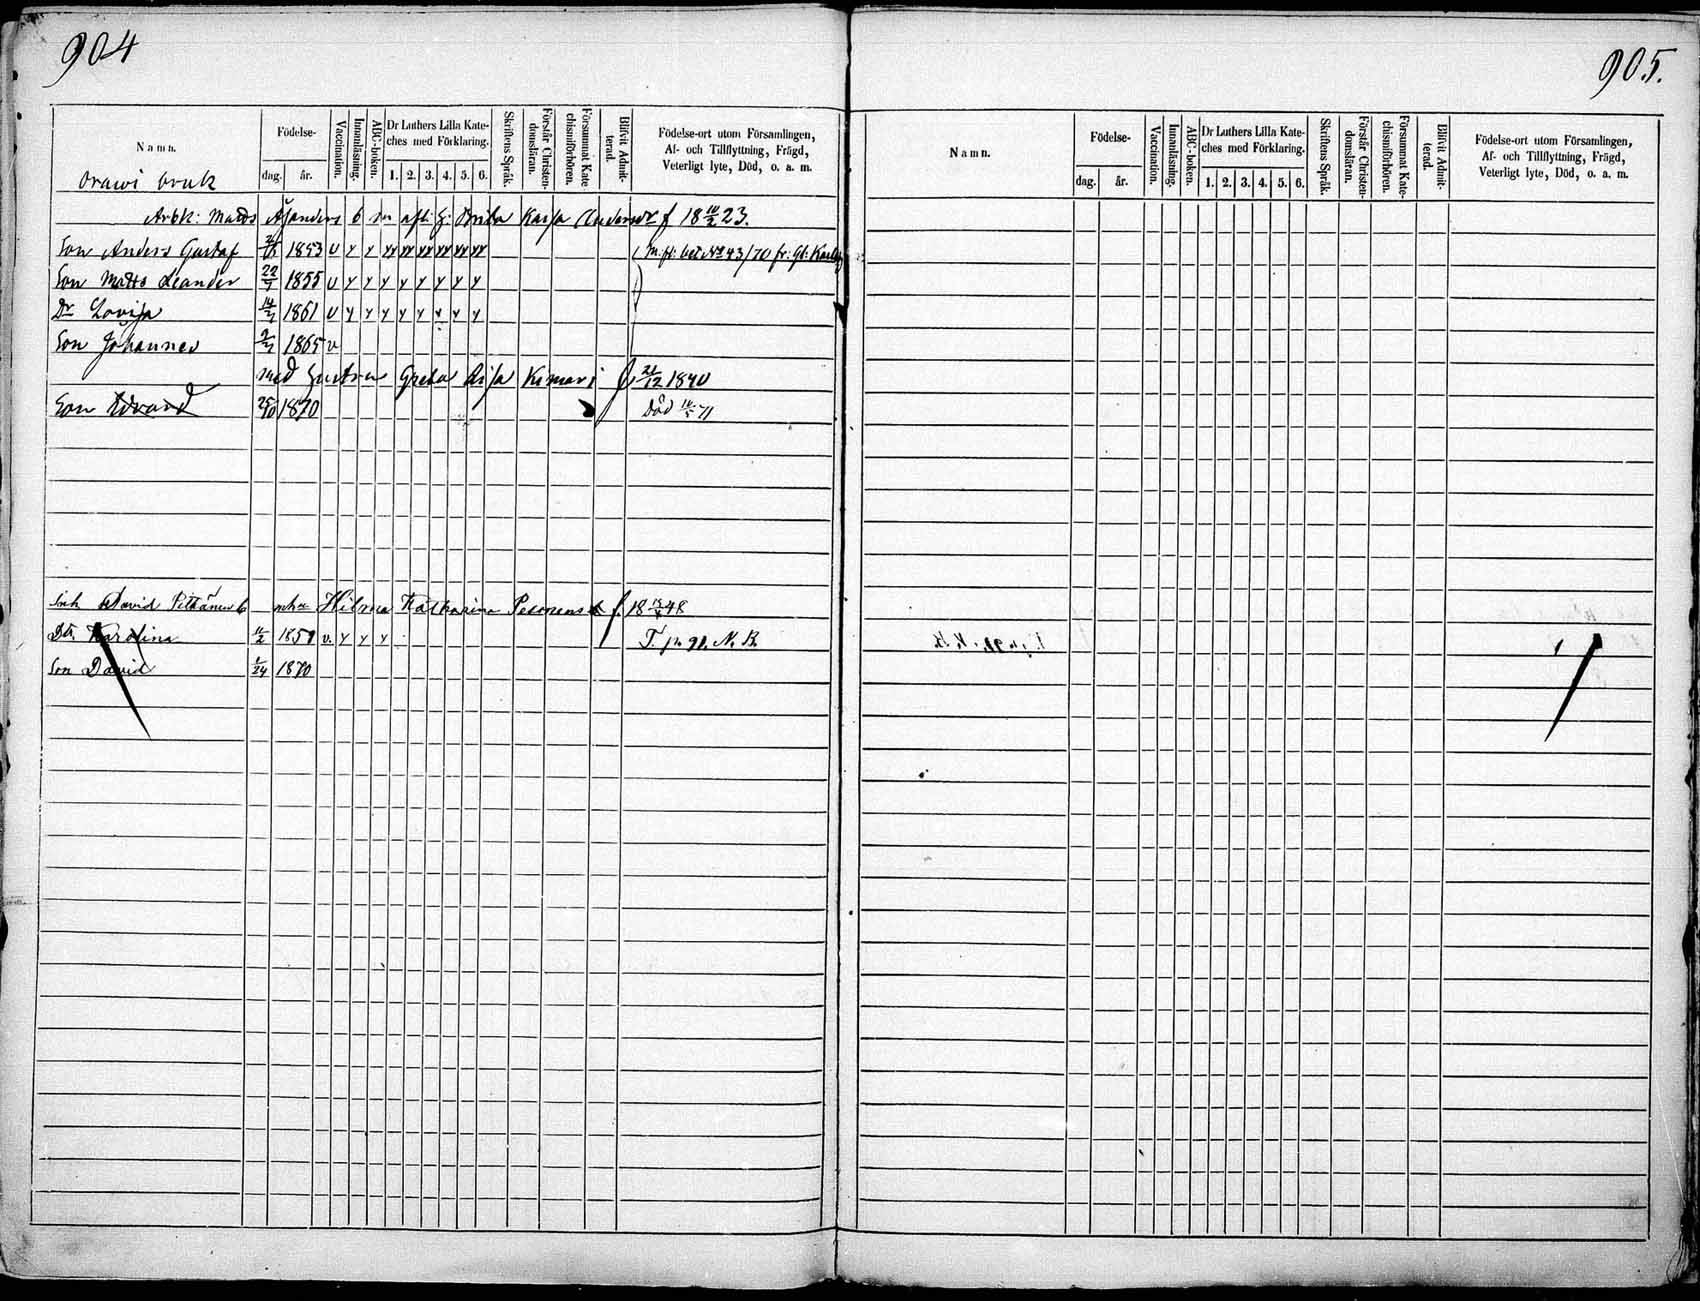 904
Namn.
Födelse-
dag. år.
Vaccination.
Innanläsning.
ABC-boken.
Dr Luthers Lilla Kate-
ches med Förklaring.
1. 2. 3. 4. 5. 6.
Skriftens Språk.
Förstår Christen-
domsläran.
Försummat Kate
chismiförhören.
Blifvit Admit-
terad.
Födelse-ort utom Församlingen,
Af- och Tillflyttning, Frägd,
Veterligt lyte, Död, o. a. m.
Orawi bruk
Arbk: Matts b Brita Kajsa f 18 23.
Son Anders Gustaf 1853 v y y
Son Matts Leander 22 1855 v y y y y y y y y
Dr Lovisa 14 1861 v y y y y y y y y
Son Johannes 1865 v
med hustru Greta f 21/12 1840
Son Edvard 25/10 1870 Död 71
David Pitkänen Hilma Katharina f. 18 48
Dtr Karolina 11/2 v. y y y T. p. 91. N. B.
Son David 1/24 1870
905.
Namn.
Födelse-
dag. år.
Vaccination.
Innanläsning.
ABC-boken.
Dr Luthers Lilla Kate-
ches med Förklaring.
1. 2. 3. 4. 5. 6.
Skriftens Språk.
Förstår Christen-
domsläran.
Försummat Kate-
chismiförhören.
Blifvit Admit-
terad.
Födelse-ort utom Församlingen,
Af- och Tillflyttning, Frägd,
Veterligt lyte, Död, o. a. m.